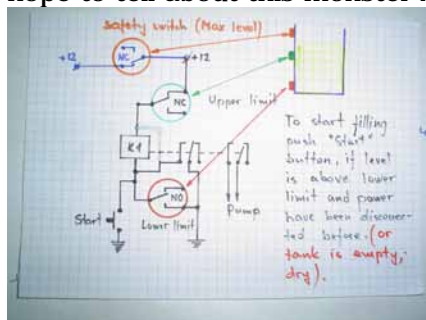 hope to tell about this monster
safety switch (Max level)
+12
NC
+12
NC
Upper limit
K1
NO
Start
Lower limit
Pump
To start filling
push "Start"
button, if level
is above lower
limit and power
have been disconec-
ted before. (or
tank is empty,
dry).